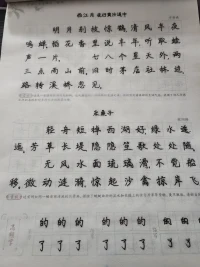 西江月 夜行黄沙道中
明月别枝惊鹊清风半夜
鸣蝉稻花香里说丰年听取蛙
声一片 七八个星天外两
三点雨山前旧时茅店社林边
路转溪桥忽见
采桑子
轻舟短棹西湖好绿水逶
迤芳草长堤隐隐笙歌处处随
无风水面琉璃滑不觉船
移微动涟漪惊起沙禽掠岸飞
的 的 的 的 的 的
了 了 了 了 了 了